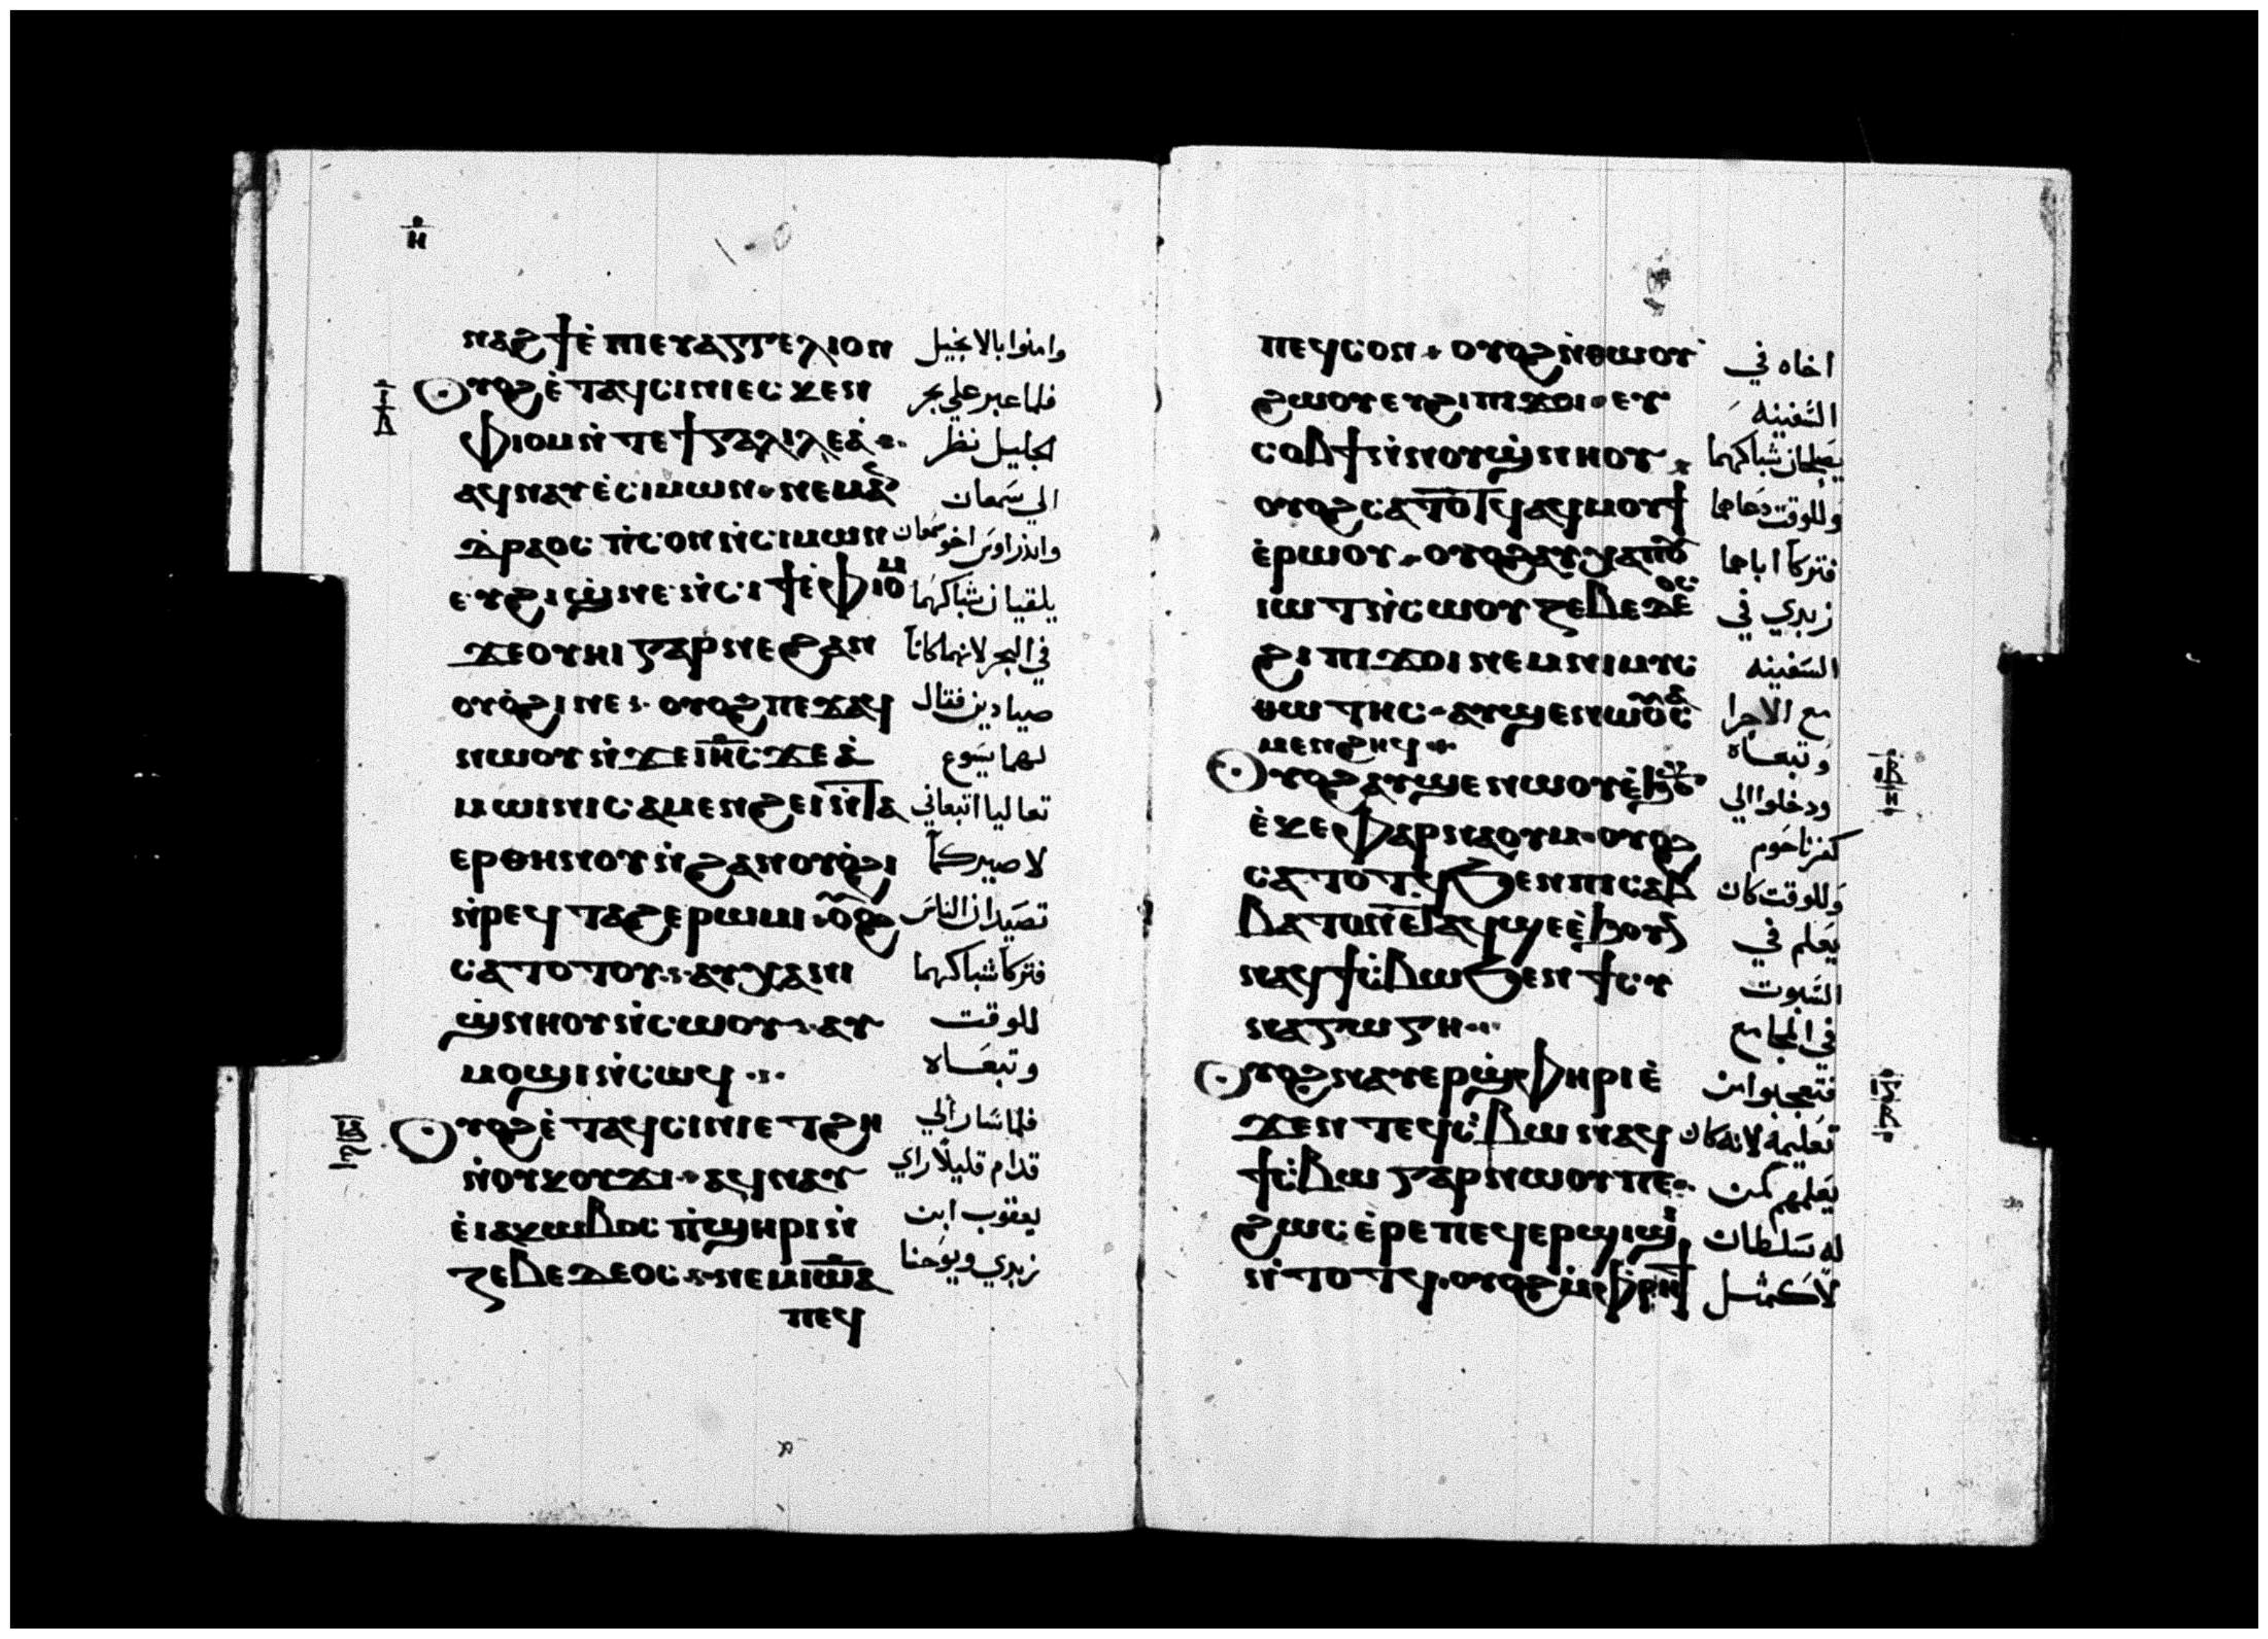 ⲛⲁϩϯ ⲉ̀ ⲡⲓⲉⲩⲁⲅⲅⲉⲗⲓⲟⲛ وامنوا بالانجيل
ⲟⲩⲟϩ ⲉ̀ⲧⲁϥⲥⲓⲛⲓ ⲉⲥⲕⲉⲛ فلما عبر علي بحر
ⲫⲓⲟⲙ ⲛ̀ⲧⲉ ϯⲅⲁⲗⲓⲗⲉⲁ̀ الجليل نظر
ⲁϥⲛⲁⲩ ⲉ̀ⲥⲓⲙⲱⲛ ⲛⲉⲙ ⲁ̀ الي سمعان
ⲇⲣⲉⲟⲥ ⲡ̀ⲥⲟⲛ ⲛ̀ⲥⲓⲙⲱⲛ واندراوس اخو سمعان
ⲉⲩϩⲓϣ̀ⲛⲉ ⲛ̀ⲥⲓϯ ⲉ̀ⲫⲓⲟⲙ يلقيان شباكهما
ϫⲉ ⲟⲩⲏⲓ ⲅⲁⲣ ⲛⲉ ϩⲁⲛ في البحر لانهما كانا
ⲟⲩⲟ̀ϩⲓ ⲛⲉ ⲟⲩⲟϩ ⲡⲉϫⲁϥ صيادين فقال
ⲛⲱⲟⲩ ⲛ̀ϫⲉ ⲓⲏⲥ ϫⲉ ⲁ̀ لهما يسوع
ⲙⲱⲓⲛⲓ ⲥⲁⲙⲉⲛϩⲏⲓ ⲛ̀ⲧⲁ تعاليا اتبعاني
ⲉⲣ ⲑⲏⲛⲟⲩ ⲛ̀ϩⲁⲛⲟⲩⲟ̀ϩⲓ لاصيركما
ⲛ̀ⲣⲉϥⲧⲁϩⲉ ⲣⲱⲙⲓ ⲟⲩⲟϩ تصيدان الناس
ⲥⲁⲧⲟⲧⲟⲩ ⲁⲩⲭⲁ ⲛⲓ فتركا شباكهما
ϣ̀ⲛⲏⲟⲩ ⲛ̀ⲥⲱⲟⲩ ⲁⲩ للوقت
ⲙⲟϣⲓ ⲛ̀ⲥⲱϥ وتبعاه
ⲟⲩⲟϩ ⲉ̀ⲧⲁϥⲥⲓⲛⲓ ⲉⲧϩⲏ فلما سار الي
ⲛ̀ⲟⲩⲕⲟⲩϫⲓ ⲁϥⲛⲁⲩ قدام قليلا راي
ⲉ̀ⲓⲁⲕⲱⲃⲟⲥ ⲡ̀ϣⲏⲣⲓ ⲛ̀ يعقوب ابن
ⲍⲉⲃⲉⲇⲉⲟⲥ ⲛⲉⲙ ⲓⲱⲁ زبدي ويوحنا
ⲡⲉϥ
ⲡⲉϥⲥⲟⲛ ⲟⲩⲟϩ ⲛ̀ⲑⲱⲟⲩ اخاه في
ϩⲱⲟⲩ ⲉⲩϩⲓ ⲡⲓϫⲟⲓ ⲉⲩ السفينه
ⲥⲟⲃϯ ⲛ̀ⲛⲟⲩϣ̀ⲛⲏⲟⲩ يصلحان شباكهما
ⲟⲩⲟϩ ⲥⲁⲧⲟⲧϥ ⲁϥⲙⲟⲩϯ وللوقت دعاهما
ⲉ̀ⲣⲱⲟⲩ ⲟⲩⲟϩ ⲁⲩⲭⲁ ⲡⲟⲩ فتركا اباهما
ⲓⲱⲧ ⲛ̀ⲥⲱⲟⲩ ⲍⲉⲃⲉⲇⲉⲟⲥ زبدي في
ϩⲓ ⲡⲓϫⲟⲓ ⲛⲉⲙ ⲛⲓⲙⲓⲥ السفينه
ⲑⲱⲧⲏⲥ ⲁⲩϣⲉⲛⲱⲟⲩ ⲥⲁ مع الاجرا
ⲙⲉⲛϩⲏϥ وتبعاه
ⲟⲩⲟϩ ⲁⲩϣⲉⲛⲱⲟⲩ ⲉ̀ϧⲟⲩⲛ ودخلوا الي
ⲉ̀ⲕⲉⲫⲁⲣⲛⲁⲟⲩⲙ ⲟⲩⲟϩ كفرناحوم
ⲥⲁⲧⲟⲧϥ ϧⲉⲛ ⲡⲓⲥⲁⲃ وللوقت كان
ⲃⲁⲧⲟⲛ ⲉⲧⲁϥϣⲉ ⲉ̀ϧⲟⲩⲛ يعلم في
ⲛⲁϥϯⲥ̀ⲃⲱ ϧⲉⲛ ϯⲥⲩ السبوت
ⲛⲁⲅⲱⲅⲏ في المجامع
ⲟⲩⲟϩ ⲛⲁⲩⲉⲣϣ̀ⲫⲏⲣⲓ ⲉ̀ فتعجبوا من
ϫⲉⲛ ⲧⲉϥⲥ̀ⲃⲱ ⲛⲁϥ تعليمه لانه كان
ϯⲥ̀ⲃⲱ ⲅⲁⲣ ⲛⲱⲟⲩ ⲡⲉ يعلمهم كمن
ϩⲱⲥ ⲉ̀ⲣⲉ ⲡⲉϥⲉⲣϣⲓϣⲓ له سلطان
ⲛ̀ⲧⲟⲧϥ ⲟⲩⲟϩ ⲙ̀ⲫⲣⲏϯ لا كمثل